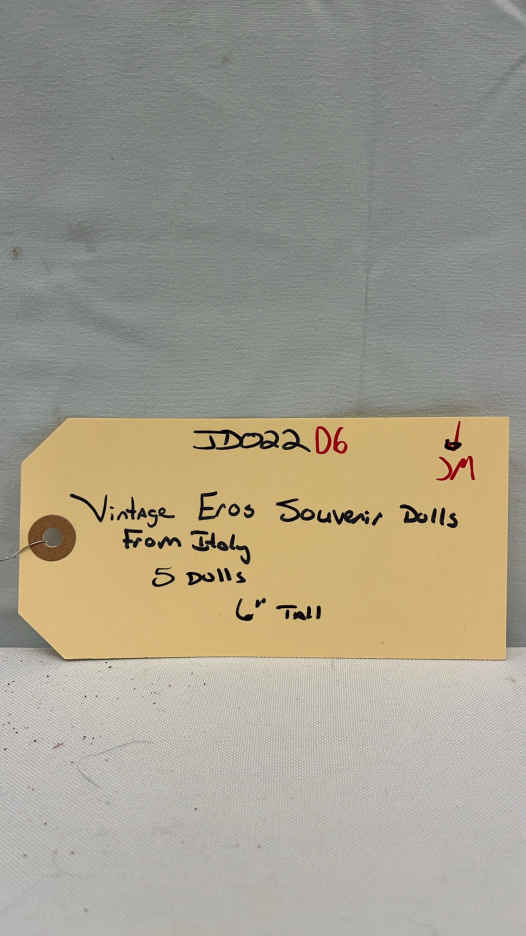 JD022 D6
JM
Vintage Eros Souvenir Dolls
From Italy
5 Dolls
6" Tall